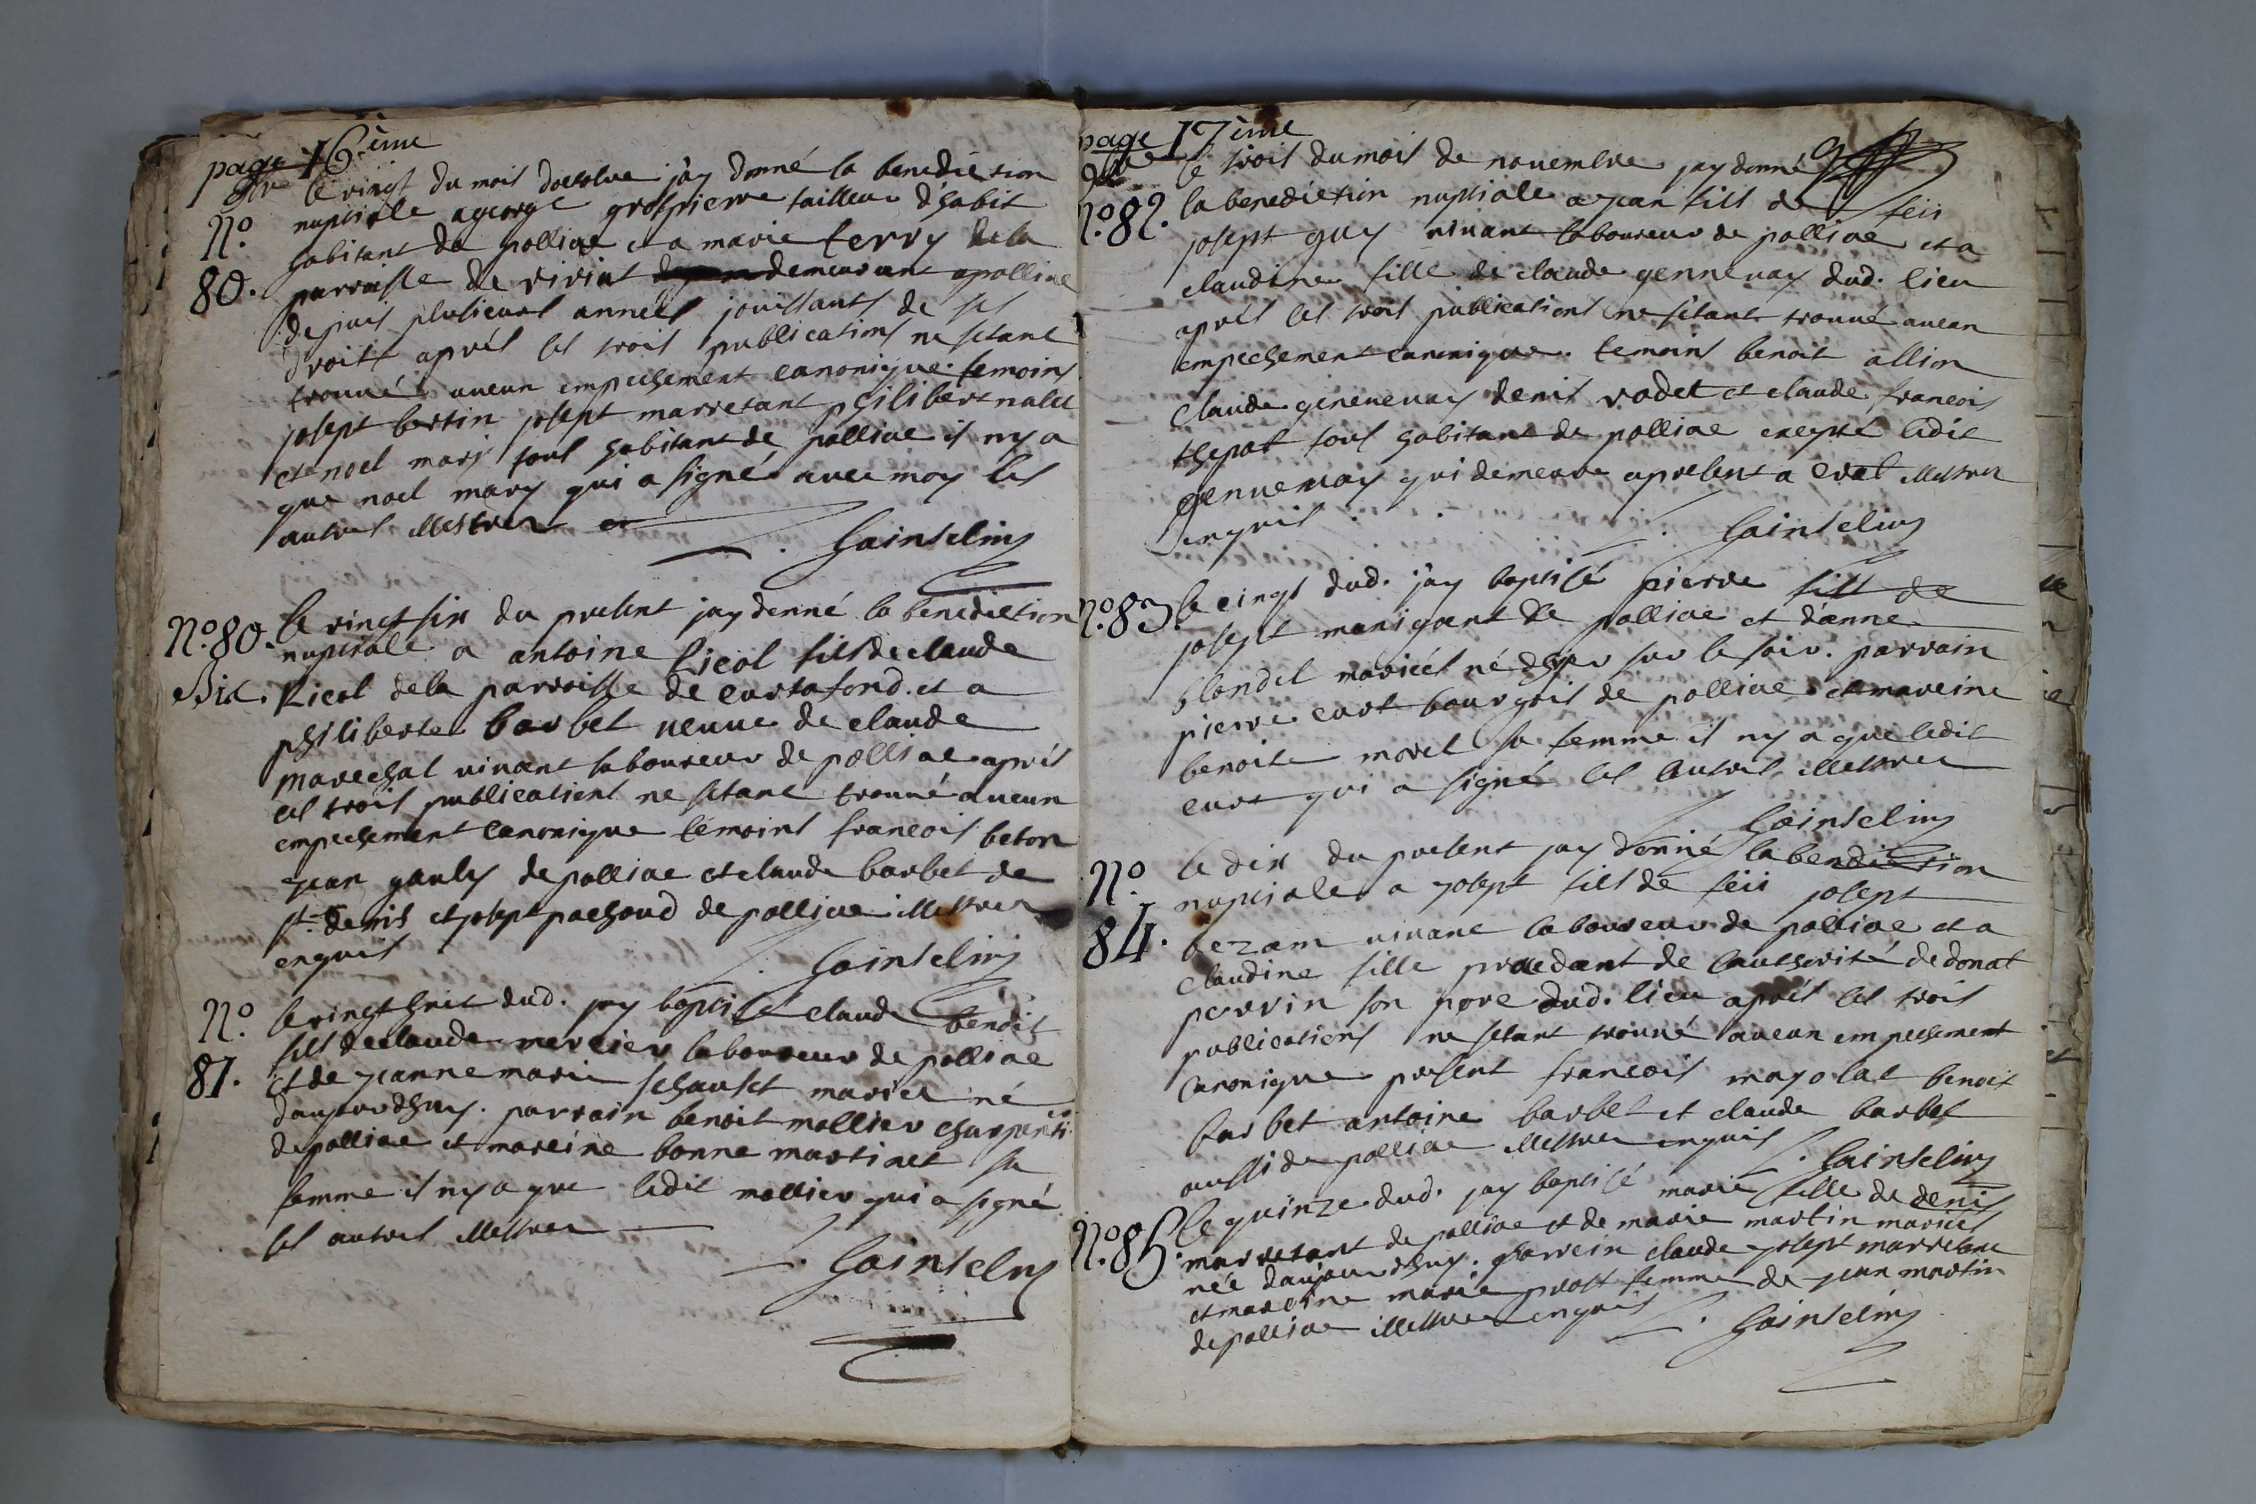 page 16ème
le vingt du mois doctobre jay donné la benediction
N.o nuptiale a george grospierre tailleur d'habit
habitant de polliac et a marie ferry de la
80. parroisse de viriat demeurant a polliac
depuis plusieurs années jouissants de ses
droitt aprés les trois publications ne setant
trouvé aucun empechement canonique. temoins
josept bertin josept marretant philibert nalet
et noel mary tous habitant de polliac il ny a
que noel mary qui a signé avec moy les
autres illettrez
Gainselin
N.o 80. le vingt six du present jay donné la benediction
nuptiale a antoine Ricol fils de claude
Bis. Ricol de la parroisse de curtafond. et a
philiberte barbet veuve de claude
marechal vivant laboureur de polliac aprés
les trois publications ne setant trouvé aucun
empechement canonique témoins francois beton
jean gauly de polliac et claude barbet de
st. denis et josept pachoud de polliac illettrez
enquis
Gainselin
N.o le vingt huit dud. jay baptisé claude bénoit
fils de claude mercier laboureur de polliac
81. et de jeanne marie mariez né
daujourdhuy. parrain benoit mollier charpentier
de polliac et mareine bonne martinet sa
femme il ny a que ledit mollier qui a signé
les autres illettrez
Gainselin
page 17ème
le trois du mois de novembre jay donné
N.o 82. la benediction nuptiale a jean fils de feu
josept guy vivant laboureur de polliac et a
claudine fille de claude gennevay dud. lieu
aprés les trois publications ne sétant trouvé aucun
empechement canonique. temoins benoit allion
claude genevevay denis rodet et claude francois
thepot tous habitant de polliac excepté ledit
gennevay qui demeure apresent a crat illettrez
enquis
Gainselin
N.o 83. le cinqt dud. jay baptisé pierre fils de
josept manigant de polliac et d'anne
blondel mariées né d'hyer sur le soir. parrain
pierre curt bourgois de polliac et mareine
benoite morel sa femme il ny a que ledit
curt qui a signé les autres illettrez
Gainselin
N.o le dix du present jay donné la benediction
nuptiale a josept fils de feu josept
84. bezam vivant laboureur de polliac et a
claudine fille procedant de l'authorité de donat
perrin son pere dud. lieu aprés les trois
publications ne setant trouvé aucun empechement
canonique present francois mayolat benoit
barbet antoine barbet et claude barbet
aussi de polliac illettrez enquis
Gainselin
N.o 85. le quinze dud. jay baptisé marie fille de denis
marretant de polliac et de marie martin mariés
née daujourdhuy. parrein claude josept marretant
et mareine marie prost femme de jean martin
de polliac illettrez enquis
Gainselin